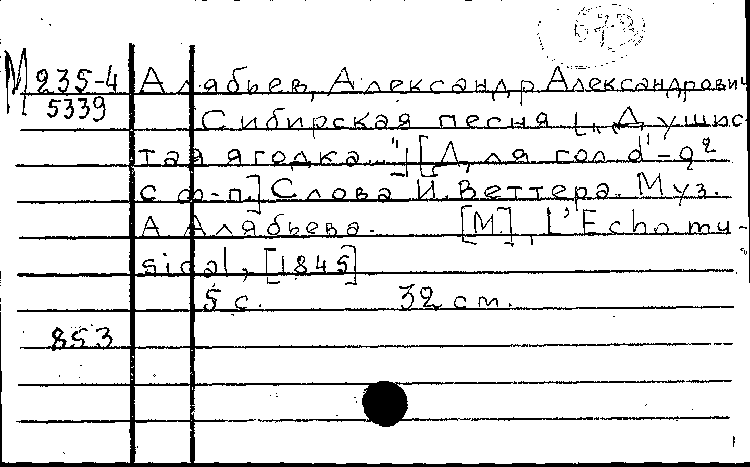 673
М 235-4 Алябьев, Александр Александрович
5339
Сибирская песня [„Душис-
тая ягодка..."] [Для гол. d¹-g²
с ф-п.] Слова И. Веттера. Муз.
А Алябьева. [М.], L'Echo mu-
sical, [1845]
5 с. 32 см.
853